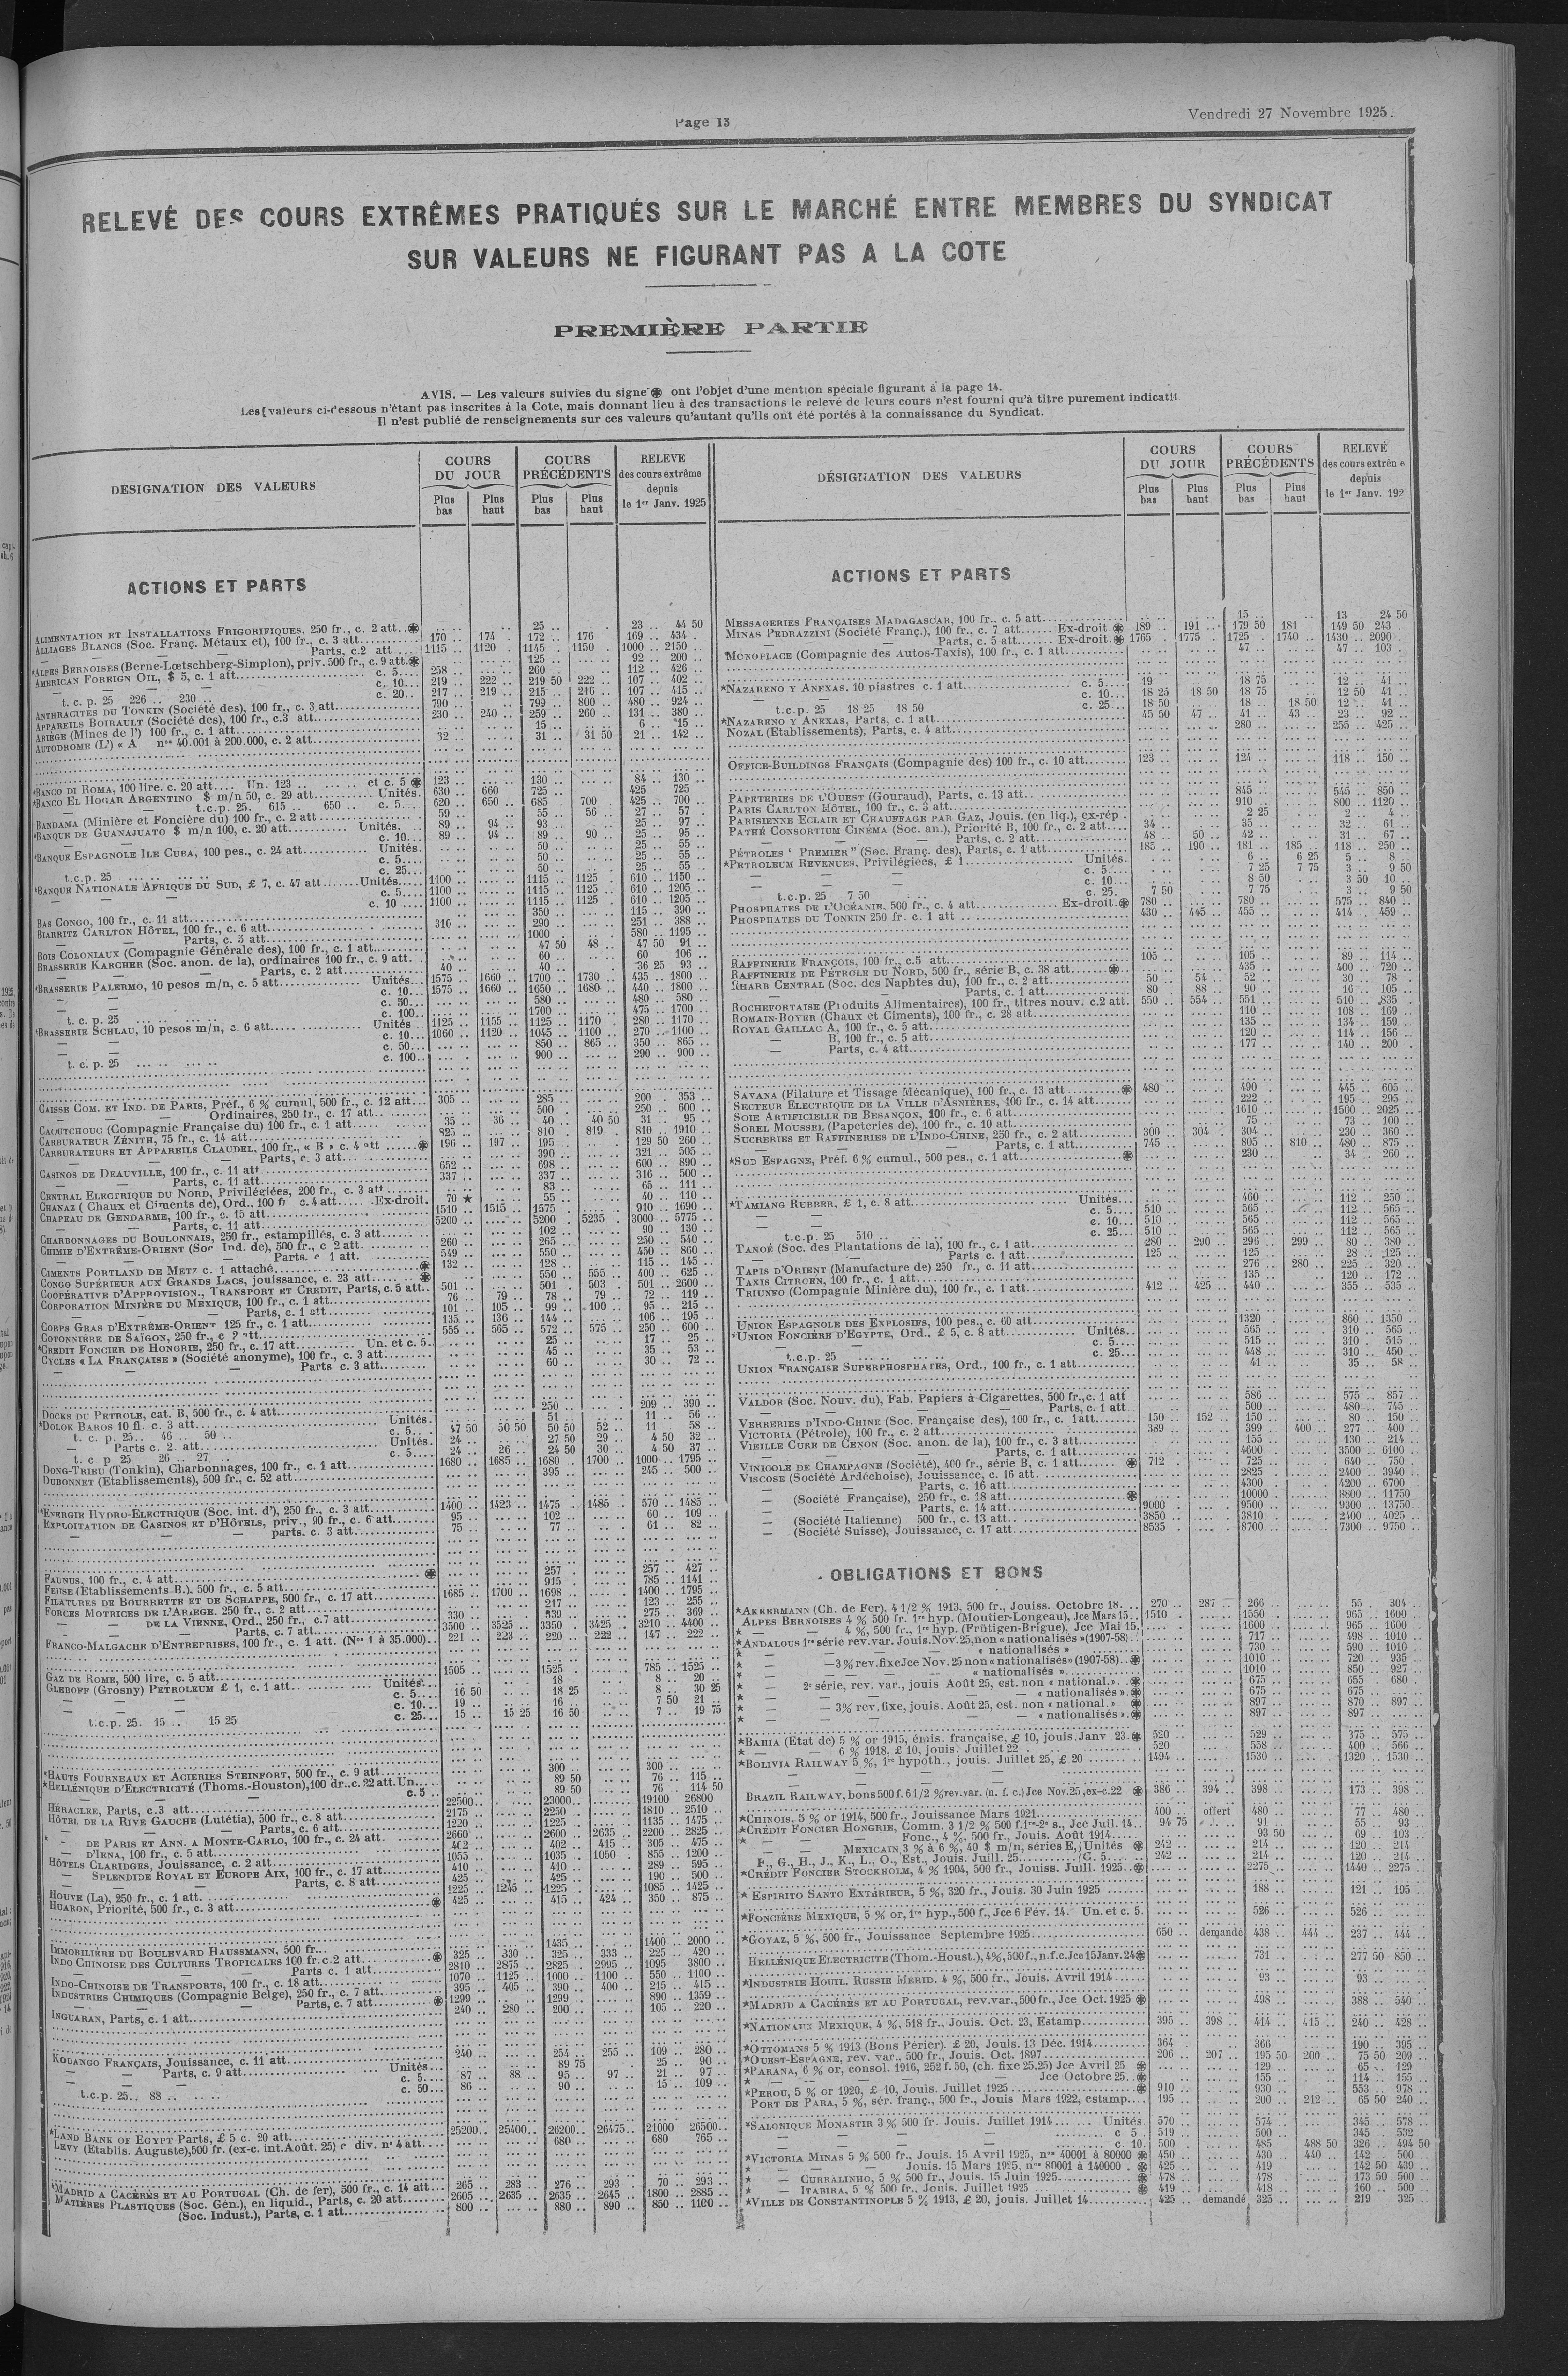 Page 13
Vendredi 27 Novembre 1925.
RELEVÉ DES COURS EXTRÊMES PRATIQUÉS SUR LE MARCHÉ ENTRE MEMBRES DU SYNDICAT
SUR VALEURS NE FIGURANT PAS A LA COTE
PREMIÈRE PARTIE
AVIS. — Les valeurs suivies du signe ont l'objet d'une mention spéciale figurant à la page 14.
Les valeurs ci-dessous n'étant pas inscrites à la Cote, mais donnant lieu à des transactions le relevé de leurs cours n'est fourni qu'à titre purement indicatif
Il n'est publié de renseignements sur ces valeurs qu'autant qu'ils ont été portés à la connaissance du Syndicat.
DESIGNATION DES VALEURS
COURS DU JOUR
COURS PRÉCÉDENTS
RELEVE des cours extrême depuis le 1er Janv. 1925
Plus bas
Plus haut
Plus bas
Plus haut
ACTIONS ET PARTS
ALIMENTATION ET INSTALLATIONS FRIGORIFIQUES, 250 fr., c. 2 att. 25 .. 23 .. 44 50
ALLIAGES BLANCS (Soc. Franç. Métaux et), 100 fr., c. 3 att. 170 .. 174 . 172 .. 176 169 .. 434 .
— Parts, c.2 att 1115 .. 1120 . 1145 .. 1150 . 1000 .. 2150 ..
ALPES BERNOISES (Berne-Lœtschberg-Simplon), priv. 500 fr., c. 9 att. 125 .. 92 .. 200 ..
AMERICAN FOREIGN OIL, $ 5, c. 1 att. c. 5 258 .. 260 .. 112 .. 426 ..
— c. 10 219 .. 222 .. 219 50 222 .. 107 .. 402 ..
t. c. p. 25 226 .. 230 c. 20 217 .. 219 .. 215 .. 216 .. 107 .. 415 ..
ANTHRACITES DU TONKIN (Société des), 100 fr., c. 3 att. 790 .. 799 .. 800 .. 480 .. 924 ..
APPAREILS BOIRAULT (Société des), 100 fr., c.3 att 230 .. 240 .. 259 .. 260 .. 131 .. 380 ..
ARIÈGE (Mines de l') 100 fr., c. 1 att. 15 .. 6 .. 15 ..
AUTODROME (L') « A nos 40.001 à 200.000, c. 2 att. 32 .. 31 .. 31 50 21 .. 142 ..
BANCO DI ROMA, 100 lire. c. 20 att. Un. 123 .. et c. 5 123 .. 130 .. 84 .. 130 ..
BANCO EL HOGAR ARGENTINO $ m/n 50, c. 29 att. Unités. 630 .. 660 725 .. 425 725
— t.c.p. 25. 615 .. 650 .. c. 5 620 .. 650 .. 685 700 425 .. 700 ..
BANDAMA (Minière et Foncière du) 100 fr., c. 2 att 59 .. 55 .. 56 .. 27 .. 57
BANQUE DE GUANAJUATO $ m/n 100, c. 20 att. Unités. 89 .. 94 .. 93 .. 25 .. 97 ..
c. 10 89 .. 94 .. 89 .. 90 .. 25 .. 95 ..
BANQUE ESPAGNOLE ILE CUBA, 100 pes., c. 24 att. Unités. 50 .. 25 .. 55 ..
c. 5 50 .. 25 .. 55 ..
t.c.p. 25 c. 25 50 .. 25 .. 55 ..
BANQUE NATIONALE AFRIQUE DU SUD, £ 7, c. 47 att. Unités 1100 .. 1115 .. 1125 .. 610 .. 1150 ..
c. 5 1100 .. 1115 .. 1125 .. 610 .. 1205 ..
c. 10 1100 .. 1115 .. 1125 . 610 .. 1205 ..
BAS CONGO, 100 fr., c. 11 att. 350 .. 115 .. 390 ..
BIARRITZ CARLTON HÔTEL, 100 fr., c. 6 att. 316 .. 290 .. 251 .. 388 ..
— Parts, c. 3 att. 1000 .. 580 .. 1195 ..
BOIS COLONIAUX (Compagnie Générale des), 100 fr., c. 1 att. 47 50 48 .. 47 50 91 ..
BRASSERIE KARCHER (Soc. anon. de la), ordinaires 100 fr., c. 9 att. 60 .. 60 106 ..
— Parts, c. 2 att. 40 .. 40 .. 36 25 93 ..
BRASSERIE PALERMO, 10 pesos m/n, c. 5 att. Unités 1575 .. 1660 .. 1700 .. 1730 435 .. 1800 ..
c. 10 1575 .. 1660 .. 1650 .. 1680 .. 440 .. 1800 ..
c. 50 580 .. 480 .. 580 ..
t. c. p. 25 c. 100 1700 .. 475 .. 1700 ..
BRASSERIE SCHLAU, 10 pesos m/n, c. 6 att. Unités 1125 .. 1155 .. 1125 .. 1170 . 280 .. 1170 ..
c. 10 1060 .. 1120 .. 1045 .. 1100 .. 270 .. 1100 ..
c. 50 850 .. 865 .. 350 .. 865 ..
t. c. p. 25 c. 100 900 .. 290 .. 900 ..
CAISSE COM. ET IND. DE PARIS, Préf., 6 % cumul, 500 fr., c. 12 att. 305 .. 285 .. 200 .. 353 ..
— Ordinaires, 250 fr., c. 17 att. 500 .. 250 .. 600 ..
CAOUTCHOUC (Compagnie Française du) 100 fr., c. 1 att. 35 .. 36 .. 40 .. 40 50 31 .. 95 ..
CARBURATEUR ZÉNITH, 75 fr., c. 14 att. 825 .. 810 .. 819 . 810 .. 1910 ..
CARBURATEURS ET APPAREILS CLAUDEL, 100 fr., « B » c. 4 att 196 .. 197 .. 195 .. 129 50 260 ..
— Parts, c. 3 att. 390 .. 321 .. 505 ..
CASINOS DE DEAUVILLE, 100 fr., c. 11 att. 652 .. 698 .. 600 .. 890 ..
— Parts, c. 11 att. 337 .. 337 .. 316 .. 500 ..
CENTRAL ELECTRIQUE DU NORD, Privilégiées, 200 fr., c. 3 att. 83 .. 65 .. 111 ..
CHANAZ ( Chaux et Ciments de), Ord., 100 fr c. 4 att. Ex-droit. 70 ★ 55 .. 40 .. 110 ..
CHAPEAU DE GENDARME, 100 fr., c. 15 att. 1510 .. 1515 .. 1575 .. 910 .. 1690 ..
— Parts, c. 11 att. 5200 .. 5200 .. 5235 . 3000 .. 5775 ..
CHARBONNAGES DU BOULONNAIS, 250 fr., estampillés, c. 3 att. 102 .. 90 .. 130 ..
CHIMIE D'EXTRÊME-ORIENT (Soc Ind. de), 500 fr., c 2 att. 260 .. 265 .. 250 .. 540 ..
— Parts. c 1 att. 549 .. 550 .. 450 .. 860 ..
CIMENTS PORTLAND DE METZ c. 1 attaché 132 .. 128 .. 115 .. 145 ..
CONGO SUPÉRIEUR AUX GRANDS LACS, jouissance, c. 23 att. 550 .. 555 .. 400 .. 625 ..
COOPÉRATIVE D'APPROVISION., TRANSPORT ET CREDIT, Parts, c. 5 att. 501 .. 501 .. 503 .. 501 .. 2600 ..
CORPORATION MINIÈRE DU MEXIQUE, 100 fr., c. 1 att. 76 .. 79 .. 78 .. 79 .. 72 .. 119 ..
— Parts, c. 1 att. 101 .. 105 .. 99 .. 100 .. 95 .. 215 ..
CORPS GRAS D'EXTRÊME-ORIENT 125 fr., c. 1 att. 135 .. 136 .. 144 .. 106 .. 195 ..
COTONNIÈRE DE SAÏGON, 250 fr., c 2 att. 555 .. 565 .. 572 .. 575 .. 250 .. 600 ..
CREDIT FONCIER DE HONGRIE, 250 fr., c. 17 att. Un. et c. 5 25 .. 17 .. 25 ..
CYCLES « LA FRANÇAISE » (Société anonyme), 100 fr., c. 3 att. 45 .. 35 .. 53 ..
— Parts c. 3 att. 60 .. 30 .. 72 ..
DOCKS DU PETROLE, cat. B, 500 fr., c. 4 att. 250 .. 209 .. 390 ..
DOLOK BAROS 10 fl. c. 3 att. Unités. 51 .. 11 .. 56 ..
t. c. p. 25.. 46 .. 50 .. c. 5 47 50 50 50 50 50 52 .. 11 .. 58 ..
— Parts c. 2. att. Unités. 24 .. 27 50 29 .. 4 50 32 ..
t. c p 25 26 .. 27 c. 5 24 .. 26 .. 24 50 30 .. 4 50 37 ..
DONG-TRIEU (Tonkin), Charbonnages, 100 fr., c. 1 att. 1680 .. 1685 .. 1680 .. 1700 .. 1000 .. 1795 ..
DUBONNET (Etablissements), 500 fr., c. 52 att. 395 .. 245 .. 500 ..
ENERGIE HYDRO-ELECTRIQUE (Soc. int. d'), 250 fr., c. 3 att. 1400 .. 1423 .. 1475 .. 1485 .. 570 .. 1485 ..
EXPLOITATION DE CASINOS ET D'HÔTELS, priv., 90 fr., c. 6 att. 95 .. 102 .. 60 .. 109 ..
— parts. c. 3 att. 75 .. 77 .. 61 .. 82 ..
FAUNUS, 100 fr., c. 4 att. 257 .. 257 .. 427 ..
FEUSE (Etablissements B.). 500 fr., c. 5 att. 915 .. 785 .. 1141 ..
FILATURES DE BOURRETTE ET DE SCHAPPE, 500 fr., c. 17 att. 1685 .. 1700 .. 1698 .. 1400 .. 1795 ..
FORCES MOTRICES DE L'ARIEGE. 250 fr., c. 2 att. 217 .. 123 .. 255 ..
— DE LA VIENNE, Ord., 250 fr., c.7 att. 330 .. 339 .. 275 .. 369 ..
— Parts, c. 7 att. 3500 .. 3525 .. 3350 .. 3425 .. 3210 .. 4400 ..
FRANCO-MALGACHE D'ENTREPRISES, 100 fr., c. 1 att. (Nos 1 à 35.000) 221 .. 223 .. 220 .. 222 .. 147 .. 222 ..
GAZ DE ROME, 500 lire, c. 5 att. 1505 .. 1525 .. 785 .. 1525 ..
GLEBOFF (Grosny) PETROLEUM £ 1, c. 1 att. Unités. 18 .. 8 .. 20 ..
c. 5 16 50 18 25 8 .. 30 25
c. 10 19 .. 16 .. 7 50 21 ..
t.c.p. 25. 15 .. 15 25 c. 25 15 .. 15 25 16 50 7 .. 19 75
HAUTS FOURNEAUX ET ACIERIES STEINFORT, 500 fr., c. 9 att. 300 .. 300 ..
HELLÉNIQUE D'ELECTRICITÉ (Thoms.-Houston), 100 dr..c. 22 att. Un. 89 50 76 .. 115 ..
c. 5 89 50 76 .. 114 50
HÉRACLEE, Parts, c.3 att. 22500 .. 23000 .. 19100 26800
HÔTEL DE LA RIVE GAUCHE (Lutétia), 500 fr., c. 8 att. 2175 .. 2250 1810 .. 2510 ..
— Parts, c. 6 att. 1220 .. 1225 .. 1135 .. 1475 ..
— DE PARIS ET ANN. A MONTE-CARLO, 100 fr., c. 24 att. 2660 .. 2600 .. 2635 .. 2200 .. 2825 ..
— D'IENA, 100 fr., c. 5 att. 402 .. 402 .. 415 .. 305 .. 475 ..
HÔTELS CLARIDGES, Jouissance, c. 2 att. 1055 .. 1035 .. 1050 . 855 .. 1200 ..
— SPLENDIDE ROYAL ET EUROPE AIX, 100 fr., c. 17 att. 410 .. 410 .. 289 .. 595 ..
— Parts, c. 8 att. 425 .. 425 .. 190 .. 500 ..
HOUVE (La), 250 fr., c. 1 att. 1225 .. 1245 .. 1225 .. 1085 .. 1425 ..
HUARON, Priorité, 500 fr., c. 3 att. 425 .. 415 .. 424 .. 350 .. 875 ..
IMMOBILIÈRE DU BOULEVARD HAUSSMANN, 500 fr. 1435 .. 1400 .. 2000 ..
INDO CHINOISE DES CULTURES TROPICALES 100 fr. c.2 att. 325 .. 330 .. 325 .. 333 .. 225 .. 420 ..
— Parts c. 1 att. 2810 .. 2875 .. 2825 .. 2995 .. 1095 3800 ..
INDO-CHINOISE DE TRANSPORTS, 100 fr., c. 18 att. 1070 .. 1125 .. 1000 .. 1100 .. 550 .. 1100 ..
INDUSTRIES CHIMIQUES (Compagnie Belge), 250 fr., c. 7 att. 395 .. 405 .. 390 .. 400 .. 215 .. 415 ..
— Parts, c. 7 att. 1299 .. 1299 .. 890 .. 1359 ..
INGUARAN, Parts, c. 1 att. 240 .. 280 .. 200 .. 105 .. 220 ..
KOUANGO FRANÇAIS, Jouissance, c. 11 att. 240 .. 254 .. 255 .. 109 .. 280 ..
— Parts, c. 9 att. Unités 89 75 25 .. 90 ..
c. 5 87 .. 88 .. 95 .. 97 .. 21 .. 97 ..
t.c.p. 25.. 88 .. c. 50 86 .. 90 .. 15 .. 109 ..
LAND BANK OF EGYPT Parts, £ 5 c. 20 att. 25200 .. 25400 .. 26200 .. 26475 .. 21000 26500 ..
LEVY (Etablis. Auguste), 500 fr. (ex-c. int. Août. 25) c div. n° 4 att. 680 .. 680 765 ..
MADRID A CACÉRÈS ET AU PORTUGAL (Ch. de fer), 500 fr., c. 14 att. 265 .. 283 .. 276 .. 293 .. 70 .. 293 ..
MATIÈRES PLASTIQUES (Soc. Gén.), en liquid., Parts, c. 20 att. 2605 .. 2635 .. 2635 .. 2645 .. 1800 .. 2885 ..
(Soc. Indust.), Parts, c. 1 att. 800 .. 880 .. 890 .. 850 .. 1120 ..
DÉSIGNATION DES VALEURS
COURS DU JOUR
COURS PRÉCÉDENTS
RELEVÉ des cours extrême depuis le 1er Janv. 192
Plus bas
Plus haut
Plus bas
Plus haut
ACTIONS ET PARTS
MESSAGERIES FRANÇAISES MADAGASCAR, 100 fr. c. 5 att. 15 .. 13 24 50
MINAS PEDRAZZINI (Société Franç.), 100 fr., c. 7 att. Ex-droit 189 .. 191 .. 179 50 181 149 50 243 ..
— Parts, c. 5 att. Ex-droit. 1765 . 1775 .. 1725 . 1740 .. 1430 .. 2090 ..
MONOPLACE (Compagnie des Autos-Taxis), 100 fr., c. 1 att. 47 .. 47 .. 103 ..
*NAZARENO Y ANEXAS. 10 piastres c. 1 att. c. 5 19 18 75 12 .. 41 ..
c. 10 18 25 18 50 18 75 12 50 41 ..
t.c.p. 25 18 25 18 50 c. 25 18 50 18 .. 18 50 12 .. 41 ..
*NAZARENO Y ANEXAS, Parts, c. 1 att. 45 50 47 .. 41 .. 43 .. 23 .. 92 ..
NOZAL (Etablissements), Parts, c. 4 att. 280 .. 255 .. 425 ..
OFFICE-BUILDINGS FRANÇAIS (Compagnie des) 100 fr., c. 10 att. 123 .. 124 .. 118 .. 150 ..
PAPETERIES DE L'OUEST (Gouraud), Parts, c. 13 att. 845 .. 545 .. 850 ..
PARIS CARLTON HÔTEL, 100 fr., c. 3 att. 910 .. 800 .. 1120 ..
PARISIENNE ECLAIR ET CHAUFFAGE PAR GAZ, Jouis. (en liq.), ex-rép . 2 25 2 .. 4 ..
PATHÉ CONSORTIUM CINÉMA (Soc. an.), Priorité B, 100 fr., c. 2 att. 34 .. 35 .. 32 .. 61 ..
— Parts, c. 2 att. 48 .. 50 .. 42 .. 31 .. 67 ..
PÉTROLES ' PREMIER " (Soc. Franç. des), Parts, c. 1 att. 185 .. 190 .. 181 .. 185 .. 118 .. 250 ..
*PETROLEUM REVENUES, Privilégiées, £ 1 Unités. 6 .. 6 25 5 .. 8 ..
c. 5 7 25 7 75 3 .. 9 50
c. 10 8 50 3 50 10 ..
t.c.p. 25 7 50 c. 25. 7 50 7 75 3 .. 9 50
PHOSPHATES DE L'OCÉANIE. 500 fr., c. 4 att. Ex-droit. 780 .. 780 .. 575 .. 840 ..
PHOSPHATES DU TONKIN 250 fr. c. 1 att 430 .. 445 .. 455 .. 414 .. 459 ..
RAFFINERIE FRANÇOIS, 100 fr., c.5 att. 105 .. 105 .. 89 .. 114 ..
RAFFINERIE DE PÉTROLE DU NORD, 500 fr., série B, c. 38 att. 435 .. 400 .. 720 ..
RHARB CENTRAL (Soc. des Naphtes du), 100 fr., c. 2 att. 50 .. 54 .. 52 .. 30 .. 78 ..
— Parts, c. 1 att. 80 88 .. 90 .. 16 .. 105 ..
ROCHEFORTAISE (Produits Alimentaires), 100 fr., titres nouv. c.2 att. 550 .. 554 .. 551 .. 510 .. 835 ..
ROMAIN-BOYER (Chaux et Ciments), 100 fr., c. 28 att. 110 .. 108 .. 169 ..
ROYAL GAILLAC A, 100 fr., c. 5 att. 135 .. 134 .. 159 ..
— B, 100 fr., c. 5 att. 120 .. 114 .. 156 ..
— Parts, c. 4 att. 177 .. 140 .. 200 .
SAVANA (Filature et Tissage Mécanique), 100 fr., c. 13 att. 480 .. 490 . 445 .. 605 ..
SECTEUR ELECTRIQUE DE LA VILLE D'ASNIÈRES, 100 fr., c. 14 att. 222 .. 195 .. 295 ..
SOIE ARTIFICIELLE DE BESANÇON, 100 fr., c. 6 att. 1610 .. 1500 .. 2025 ..
SOREL MOUSSEL (Papeteries de), 100 fr., c. 10 att. 75 .. 73 .. 100 ..
SUCRERIES ET RAFFINERIES DE L'INDO-CHINE, 250 fr., c. 2 att. 300 .. 304 .. 304 .. 230 .. 360 ..
— Parts, c. 1 att. 745 .. 805 810 .. 480 .. 875 ..
*SUD ESPAGNE, Préf. 6 % cumul., 500 pes., c. 1 att. 230 .. 34 .. 260 ..
*TAMIANG RUBBER, £ 1, c. 8 att. Unités 460 .. 112 .. 250 ..
c. 5 510 .. 565 .. 112 .. 565 ..
c. 10 510 .. 565 .. 112 .. 565 ..
t.c.p. 25 510 .. c. 25 510 .. 565 .. 112 .. 565 ..
TANOÉ (Soc. des Plantations de la), 100 fr., c. 1 att. 280 .. 290 .. 296 .. 299 .. 80 .. 380 ..
— Parts c. 1 att. 125 .. 125 .. 28 .. 125 ..
TAPIS D'ORIENT (Manufacture de) 250 fr., c. 11 att. 276 .. 280 .. 225 .. 320 ..
TAXIS CITROEN, 100 fr., c. 1 att. 135 .. 120 .. 172 ..
TRIUNFO (Compagnie Minière du), 100 fr., c. 1 att. 412 .. 425 .. 440 .. 355 .. 535 ..
UNION ESPAGNOLE DES EXPLOSIFS, 100 pes., c. 60 att. 1320 .. 860 .. 1350 ..
UNION FONCIÈRE D'EGYPTE, Ord., £ 5, c. 8 att. Unités. 565 .. 310 .. 565 ..
c. 5 515 .. 310 .. 515 ..
t.c.p. 25 c. 25 448 .. 310 .. 450 ..
UNION FRANÇAISE SUPERPHOSPHATES, Ord., 100 fr., c. 1 att. 41 .. 35 .. 58 ..
VALDOR (Soc. Nouv. du), Fab. Papiers à Cigarettes, 500 fr., c. 1 att 586 .. 575 .. 857 ..
— Parts, c. 1 att 500 .. 480 .. 745 ..
VERRERIES D'INDO-CHINE (Soc. Française des), 100 fr., c. 1 att. 150 .. 152 .. 150 .. 80 .. 150 ..
VICTORIA (Pétrole), 100 fr., c. 2 att. 389 .. 399 .. 400 .. 277 .. 400 ..
VIEILLE CURE DE CENON (Soc. anon. de la), 100 fr., c. 3 att. 155 .. 130 .. 214 ..
— Parts, c. 1 att. 4600 .. 3500 .. 6100 ..
VINICOLE DE CHAMPAGNE (Société), 400 fr., série B, c. 1 att. 712 .. 725 .. 640 .. 750 ..
VISCOSE (Société Ardéchoise), Jouissance, c. 16 att. 2825 .. 2400 .. 3940 ..
— Parts, c. 16 att. 4300 .. 4200 .. 6700 ..
— (Société Française), 250 fr., c. 18 att. 10000 .. 8800 .. 11750
— Parts, c. 14 att. 9000 .. 9500 .. 9300 .. 13750
— (Société Italienne) 500 fr., c. 13 att. 3850 .. 3810 .. 2400 .. 4025 ..
— (Société Suisse), Jouissance, c. 17 att. 8535 8700 .. 7300 .. 9750 ..
OBLIGATIONS ET BONS
*AKKERMANN (Ch. de Fer). 4 1/2 % 1913, 500 fr., Jouiss. Octobre 18. 270 .. 287 .. 266 .. 55 . 304 .
ALPES BERNOISES 4 % 500 fr. 1re hyp. (Moutier-Longeau), Jce Mars 15 1510 .. 1550 .. 965 .. 1600 .
* — 4 %, 500 fr., 1re hyp. (Frütigen-Brigue), Jce Mai 15. 1600 .. 965 .. 1600
*ANDALOUS 1re série rev. var. Jouis. Nov. 25, non « nationalisés » (1907-58) 717 .. 498 .. 1010 ..
* — « nationalisés » 730 .. 590 .. 1010 ..
* — 3 % rev. fixe Jce Nov. 25 non « nationalisés » (1907-58) 1010 .. 720 .. 935 ..
* — « nationalisés » 1010 .. 850 .. 927 ..
* — 2e série, rev. var., jouis Août 25, est. non « national. » 675 .. 655 .. 680 ..
* — « nationalisés » 675 .. 675 ..
* — 3% rev. fixe, jouis. Août 25, est. non « national. » 897 .. 870 .. 897 ..
* — « nationalisés » 897 .. 897 ..
*BAHIA (Etat de) 5 % or 1915, émis. française, £ 10, jouis. Janv 23. 520 .. 529 .. 375 .. 575 ..
* — 6 % 1918, £ 10, jouis. Juillet 22 520 558 .. 400 .. 566 ..
*BOLIVIA RAILWAY 5 %, 1re hypoth., jouis. Juillet 25, £ 20 1494 .. 1530 .. 1320 .. 1530 ..
BRAZIL RAILWAY, bons 500 f. 6 1/2 % rev. var. (n. f. c.) Jce Nov. 25, ex-c. 22 386 .. 394 .. 398 .. 173 .. 398 ..
*CHINOIS, 5 % or 1914, 500 fr., Jouissance Mars 1921. 400 .. offert 480 .. 77 .. 480 ..
*CRÉDIT FONCIER HONGRIE, Comm. 3 1/2 % 500 f. 1re-2e s., Jce Juil. 14. 94 75 91 .. 55 .. 93
* — Fonc., 4 %, 500 fr., Jouis. Août 1914. 93 50 69 .. 103
* — MEXICAIN 3 % à 6 %, 40 $ m/n, séries E, Unités 242 .. 214 .. 120 .. 214
F., G., H., J., K., L., O., Est., Jouis. Juill. 25. C. 5 242 .. 214 .. 120 .. 214 ..
*CRÉDIT FONCIER STOCKHOLM, 4 % 1904, 500 fr., Jouiss. Juill. 1925. 2275 1440 .. 2275 ..
* ESPIRITO SANTO EXTÉRIEUR, 5 %, 320 fr., Jouis. 30 Juin 1925 188 .. 121 .. 195 ..
*FONCIÈRE MEXIQUE, 5 % or, 1re hyp., 500 f., Jce 6 Fév. 14. Un. et c. 5. 526 .. 526 ..
*GOYAZ, 5 %, 500 fr., Jouissance Septembre 1925. 650 .. demandé 438 .. 444 .. 237 .. 444 ..
HELLÉNIQUE ELECTRICITE (Thom.-Houst.), 4 %, 500 f., n. f. c. Jce 15 Janv. 24 731 .. 277 50 850 ..
*INDUSTRIE HOUIL. RUSSIE MERID. 4 %, 500 fr., Jouis. Avril 1914 93 .. 93 ..
*MADRID A CACÉRÈS ET AU PORTUGAL, rev. var., 500 fr., Jce Oct. 1925 498 .. 388 .. 540 ..
*NATIONAUX MEXIQUE, 4 %, 518 fr., Jouis. Oct. 23, Estamp. 395 .. 398 .. 414 .. 415 .. 240 .. 428 ..
*OTTOMANS 5 % 1913 (Bons Périer). £ 20, Jouis. 13 Déc. 1914 364 . 366 .. 190 .. 395 ..
*OUEST-ESPAGNE, rev. var., 500 fr., Jouis. Oct. 1897 206 .. 207 .. 195 50 200 .. 75 50 209 ..
*PARANA, 6 % or, consol. 1916, 252 f. 50, (ch. fixe 25.25) Jce Avril 25 129 .. 65 .. 129 ..
* — Jce Octobre 25 155 .. 114 .. 155 ..
*PEROU, 5 % or 1920, £ 10, Jouis. Juillet 1925 910 .. 930 .. 553 .. 978 ..
PORT DE PARA, 5 %, sér. franç., 500 fr., Jouis Mars 1922, estamp. 195 .. 200 .. 212 .. 65 50 240 ..
*SALONIQUE MONASTIR 3 % 500 fr. Jouis. Juillet 1914 Unités 570 .. 574 .. 345 .. 578 ..
c 5 519 .. 500 .. 345 .. 532
c. 10 500 .. 485 488 50 326 .. 494 50
*VICTORIA MINAS 5 % 500 fr., Jouis. 15 Avril 1925, nos 40001 à 80000 450 .. 430 .. 440 .. 142 .. 500 ..
* — Jouis. 15 Mars 1925, nos 80001 à 140000 425 .. 419 142 50 439 ..
* — CURRALINHO, 5 % 500 fr., Jouis. 15 Juin 1925 478 .. 478 173 50 500 ..
* — ITABIRA, 5 % 500 fr., Jouis. Juillet 1925 419 .. 418 .. 160 .. 500 ..
*VILLE DE CONSTANTINOPLE 5 % 1913, £ 20, jouis. Juillet 14 425 .. demandé 325 .. 219 325 ..